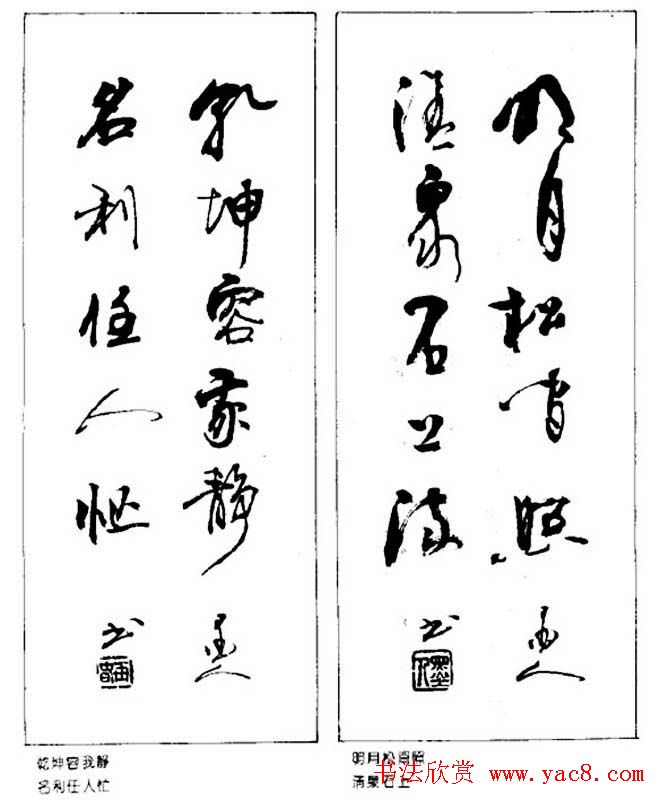 明月松间照
清泉石上流
墨人
书
乾坤容我静
名利任人忙
墨人
书
乾坤容我静
名利任人忙
明月松間照
清泉石上
书法欣赏 www.yac8.com